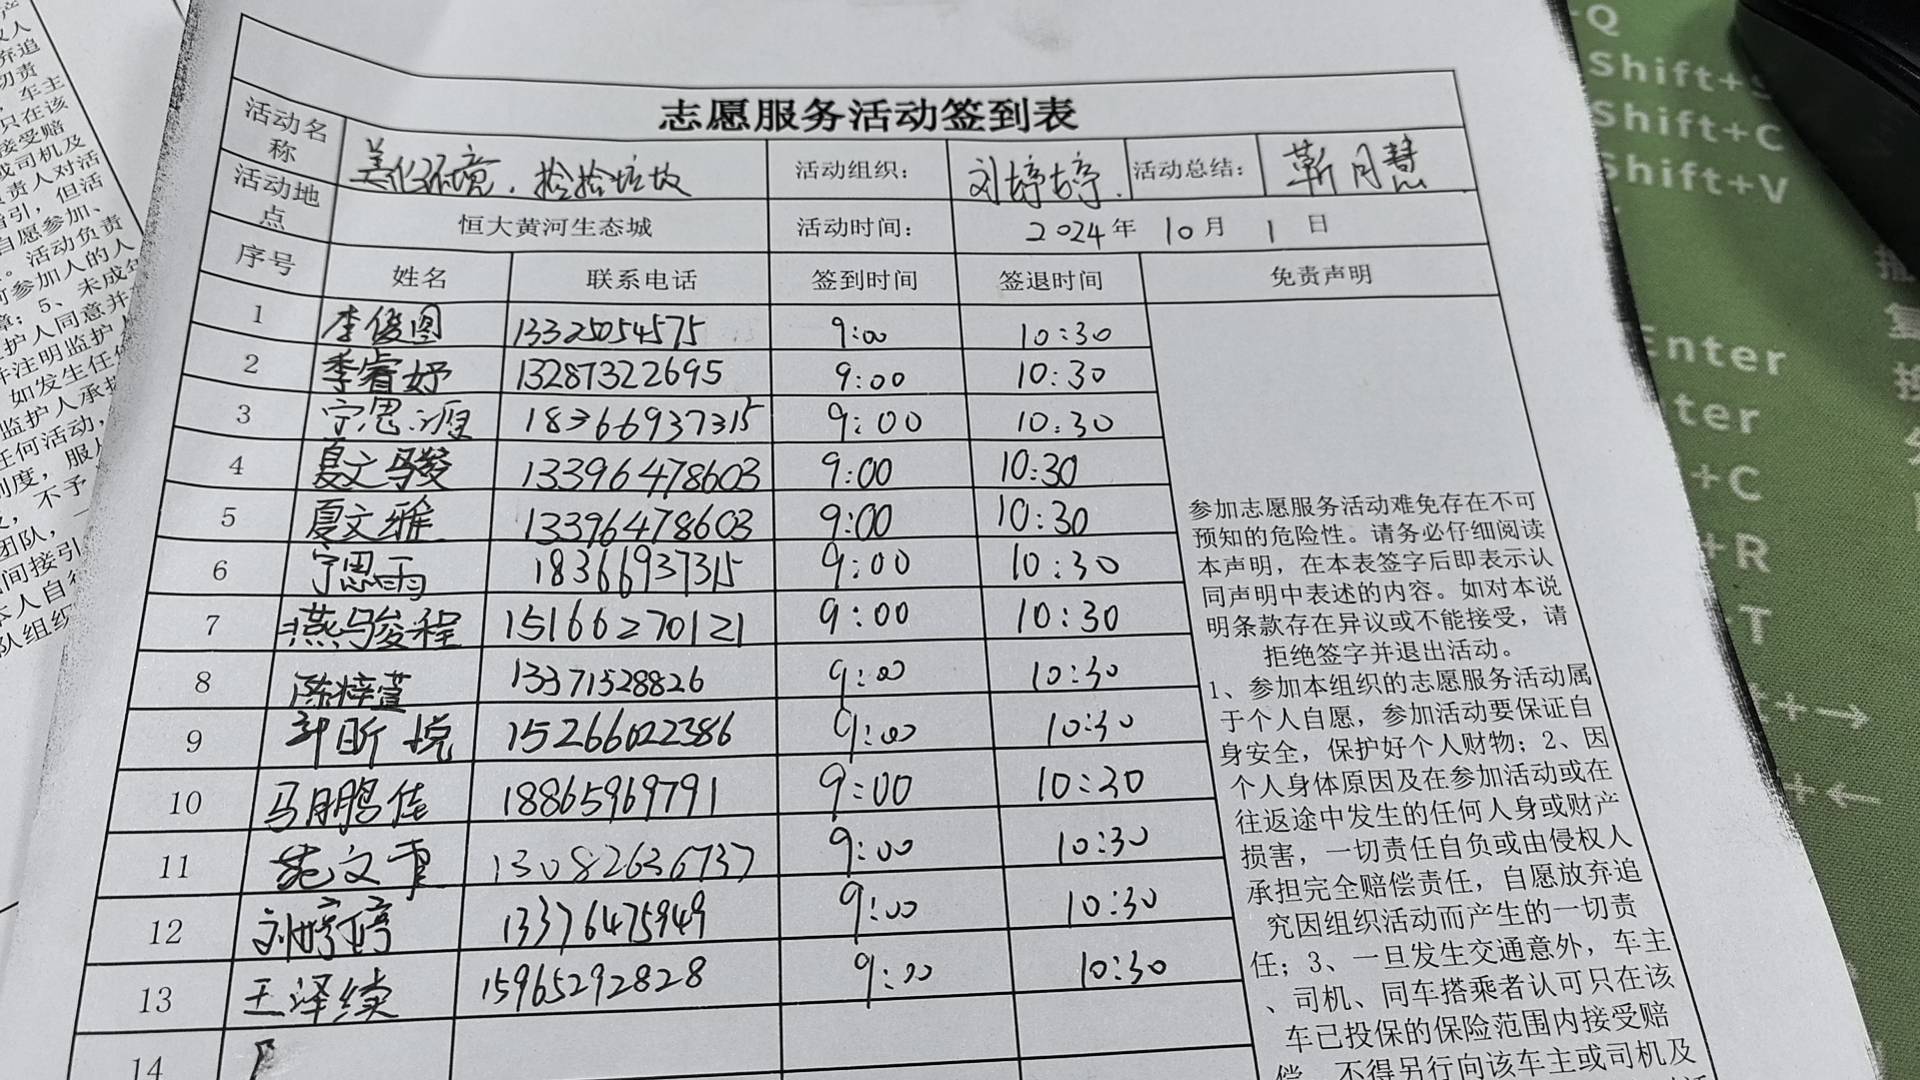 志愿服务活动签到表
活动名称 美化环境.捡捡垃圾 活动组织： 刘婷婷. 活动总结： 靳月慧
活动地点 恒大黄河生态城 活动时间： 2024年 10月 1日
序号 姓名 联系电话 签到时间 签退时间 免责声明
1 李俊图 13325054575 9:00 10:30
2 季睿妤 13287322695 9:00 10:30
3 宁思涯 18366937315 9:00 10:30
4 夏文骏 13396478603 9:00 10:30
5 夏文雅 13396478603 9:00 10:30
6 宁思雨 18366937315 9:00 10:30
7 燕骏程 15166270121 9:00 10:30
8 陈梓萱 13371528826 9:00 10:30
9 昕悦 15266022386 9:00 10:30
10 马鹏佳 18865969791 9:00 10:30
11 文 13082636737 9:00 10:30
12 刘婷婷 13376475949 9:00 10:30
13 王泽续 15965292828 9:00 10:30
14
参加志愿服务活动难免存在不可
预知的危险性。请务必仔细阅读
本声明，在本表签字后即表示认
同声明中表述的内容。如对本说
明条款存在异议或不能接受，请
拒绝签字并退出活动。
1、参加本组织的志愿服务活动属
于个人自愿，参加活动要保证自
身安全，保护好个人财物；2、因
个人身体原因及在参加活动或在
往返途中发生的任何人身或财产
损害，一切责任自负或由侵权人
承担完全赔偿责任，自愿放弃追
究因组织活动而产生的一切责
任；3、一旦发生交通意外，车主
、司机、同车搭乘者认可只在该
车已投保的保险范围内接受赔
偿，不得另行向该车主或司机及
Shift+C
Shift+V
Enter
+C
+R
T
+→
+←